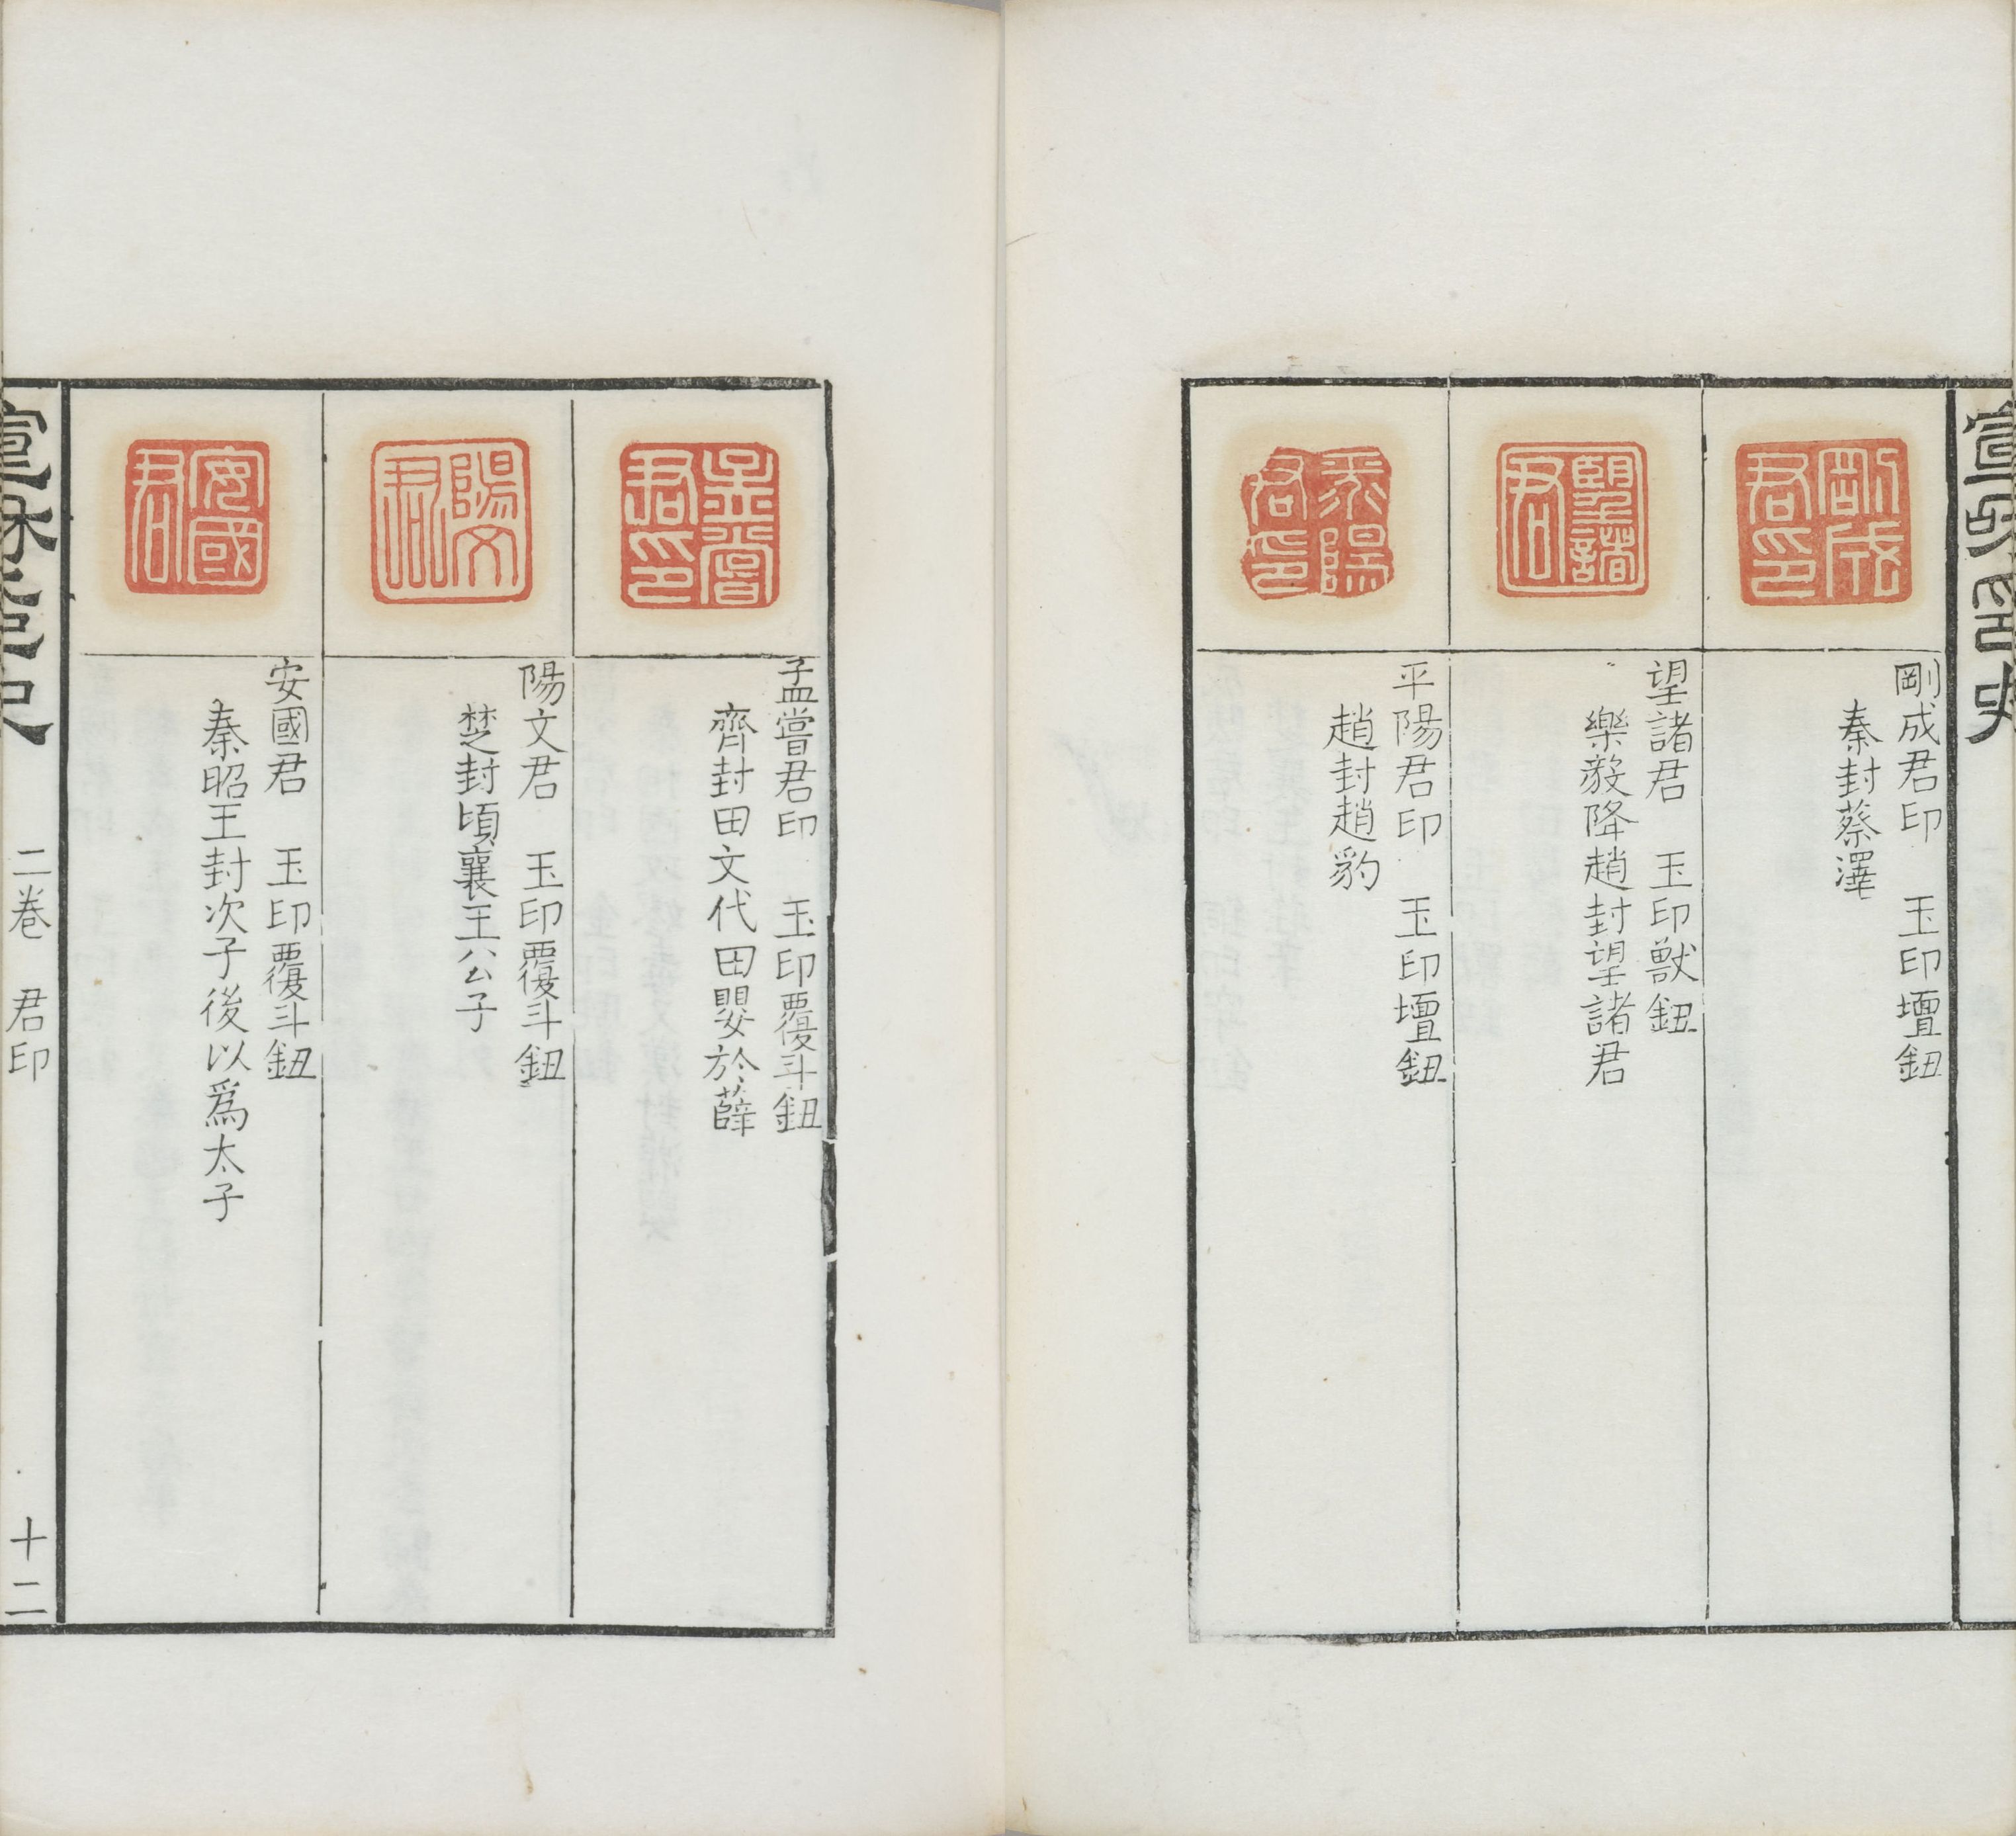 剛成君印
剛成君印　玉印壇鈕
秦封蔡澤
望諸君
望諸君　玉印獸鈕
樂毅降趙封望諸君
平陽君印
平陽君印　玉印壇鈕
趙封趙豹
孟嘗君印
孟嘗君印　玉印覆斗鈕
齊封田文代田嬰於薛
陽文君
陽文君　玉印覆斗鈕
楚封頃襄王公子
安國君
安國君　玉印覆斗鈕
秦昭王封次子後以爲太子
二卷　君印
十二